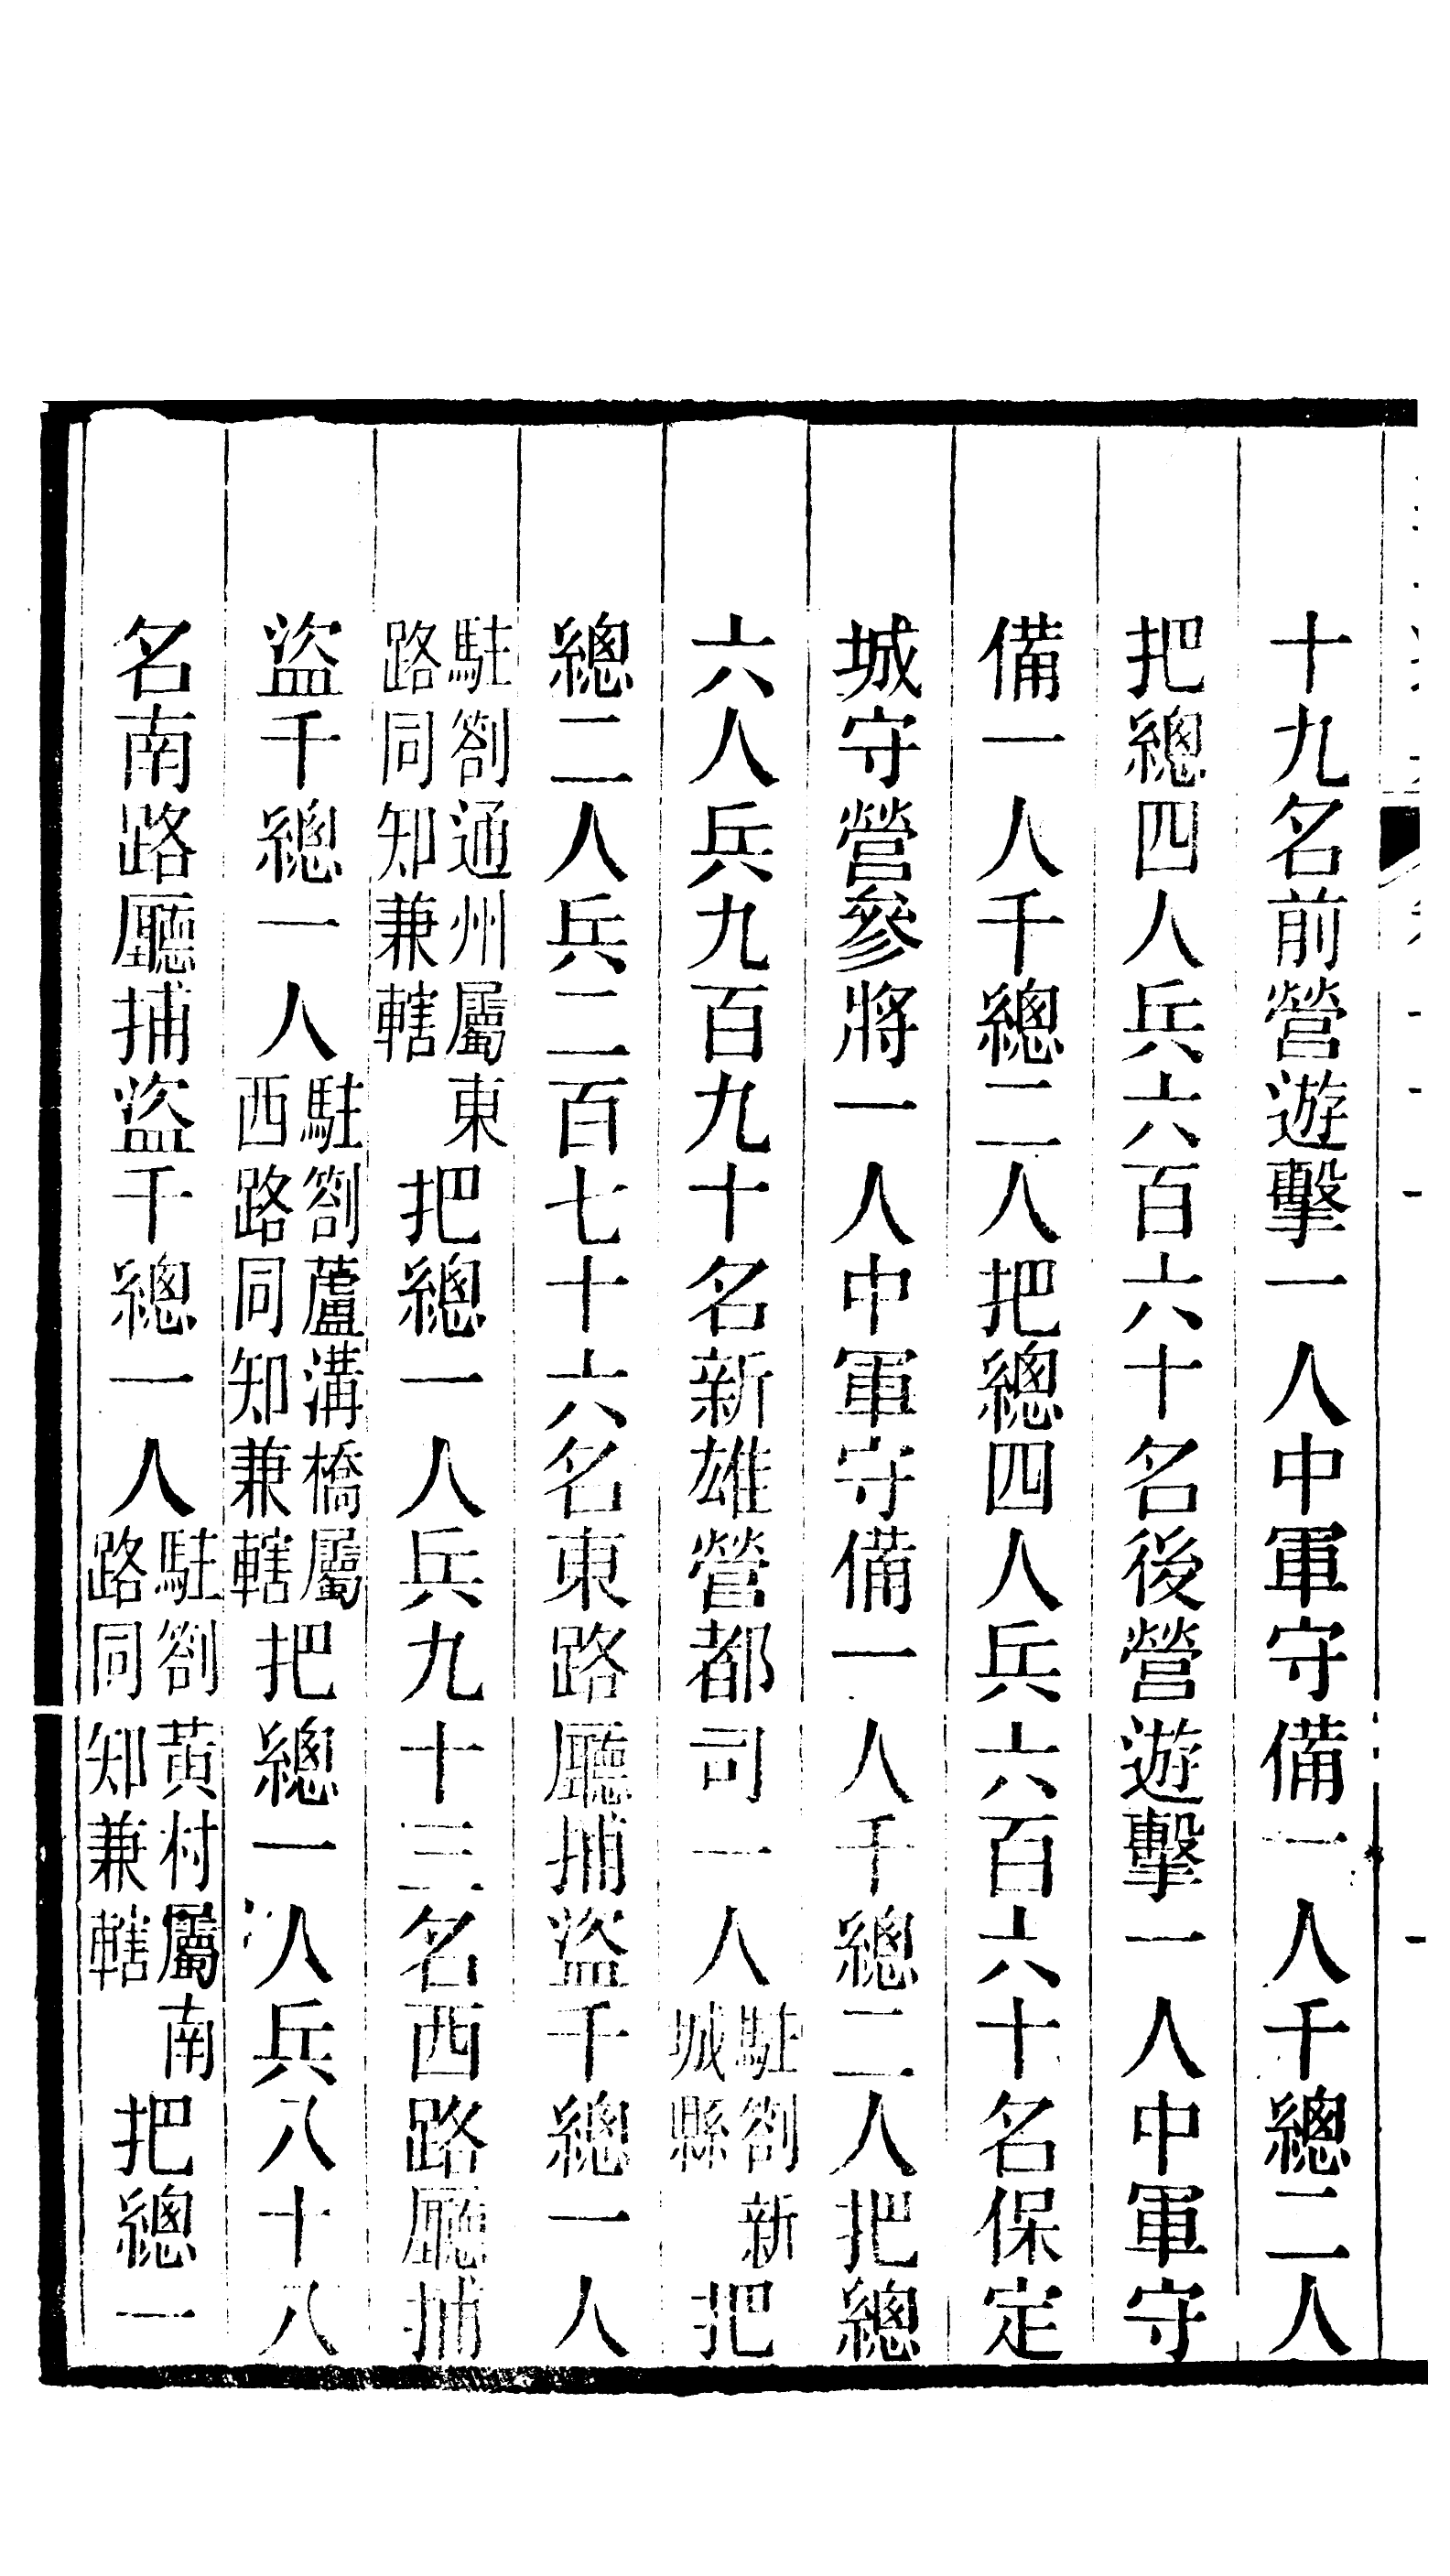 十九名前營遊擊一人中軍守備一人千總二人
把總四人兵六百六十名後營遊擊一人中軍守
備一人千總二人把總四人兵六百六十名保定
城守營參將一人中軍守備一人千總二人把總
六人兵九百九十名新雄營都司一人駐劄新城縣把
總二人兵二百七十六名東路廳捕盜千總一人
駐劄通州屬東路同知兼轄把總一人兵九十三名西路廳捕
盜千總一人駐劄蘆溝橋屬西路同知兼轄把總一人兵八十八
名南路廳捕盜千總一人駐劄黃村屬南路同知兼轄把總一